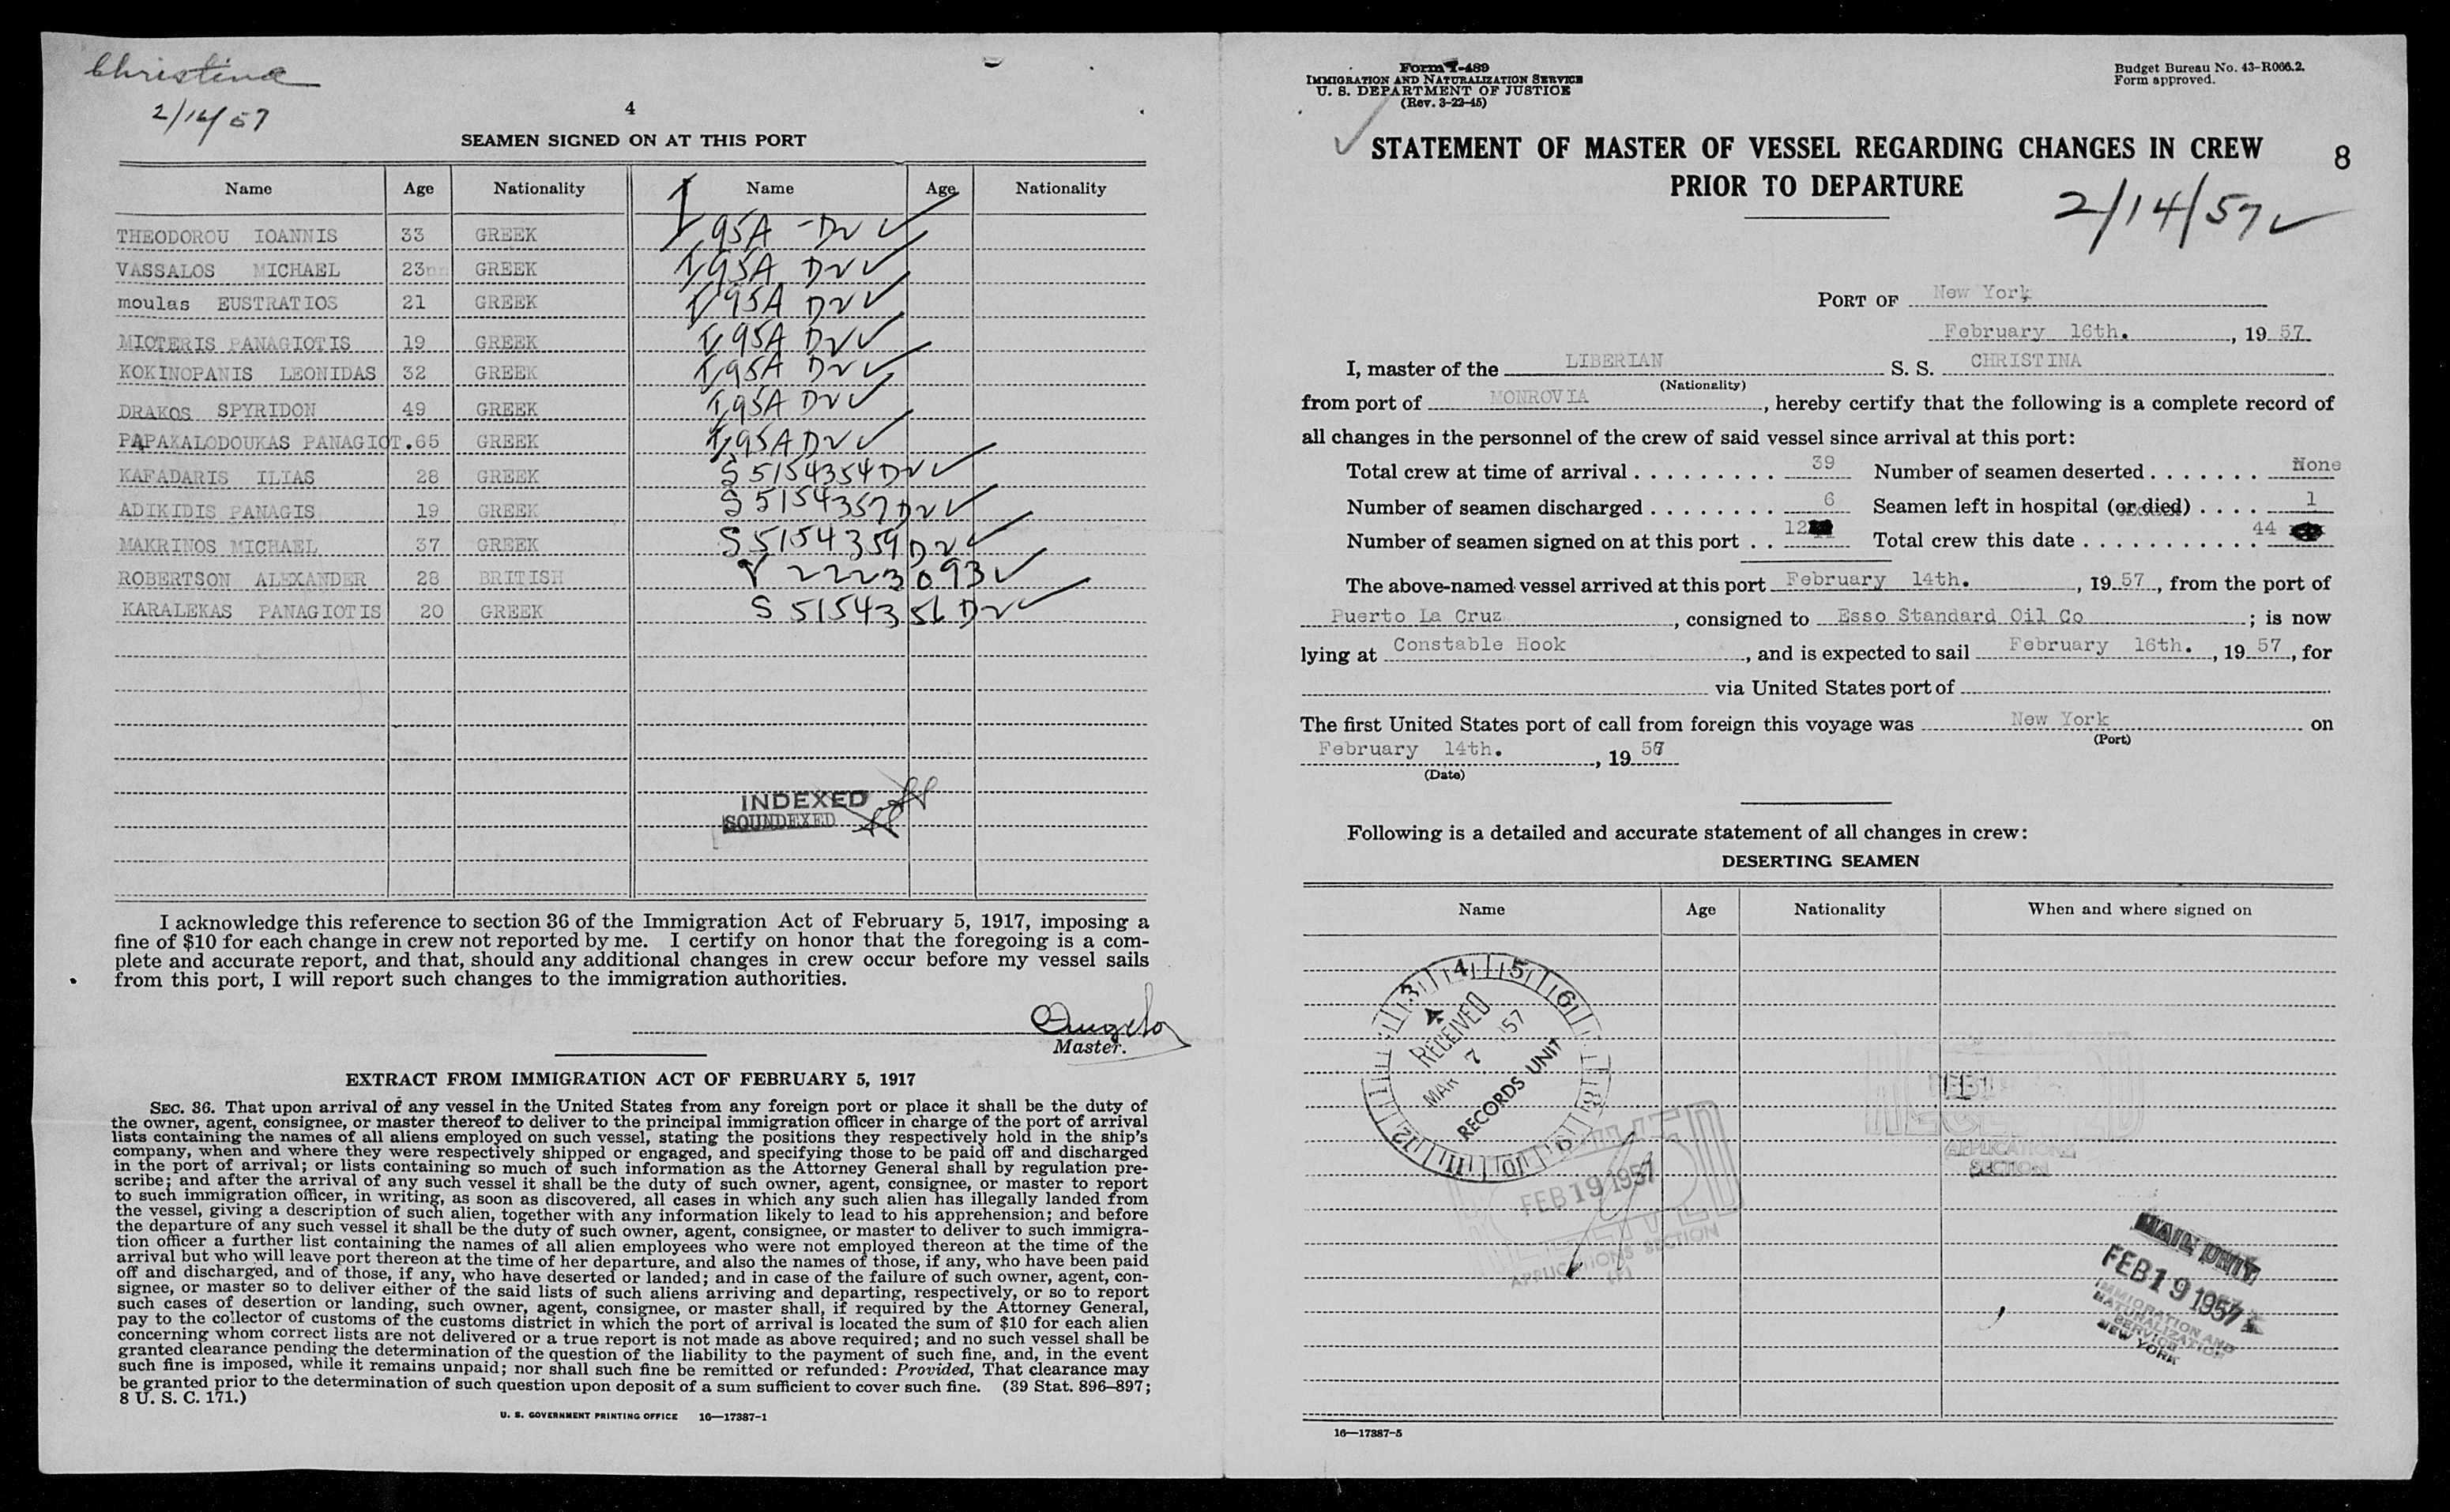 Christina
2/14/57
4
SEAMEN SIGNED ON AT THIS PORT
Name Age Nationality Name Age Nationality
THEODOROU IOANNIS 33 GREEK I 95A - D2 ✓
VASSALOS MICHAEL 23 GREEK I 95A D2 ✓
moulas EUSTRATIOS 21 GREEK I 95A D2 ✓
MIOTERIS PANAGIOTIS 19 GREEK I 95A D2 ✓
KOKINOPANIS LEONIDAS 32 GREEK I 95A D2 ✓
DRAKOS SPYRIDON 49 GREEK I 95A D2 ✓
PAPAKALODOUKAS PANAGIOT. 65 GREEK I 95A D2 ✓
KAFADARIS ILIAS 28 GREEK S 5154354 D2 ✓
ADIKIDIS PANAGIS 19 GREEK S 5154357 D2 ✓
MAKRINOS MICHAEL 37 GREEK S 5154359 D2 ✓
ROBERTSON ALEXANDER 28 BRITISH V 2223093 ✓
KARALEKAS PANAGIOTIS 20 GREEK S 5154356 D2 ✓
INDEXED
SOUNDEXED
I acknowledge this reference to section 36 of the Immigration Act of February 5, 1917, imposing a
fine of $10 for each change in crew not reported by me. I certify on honor that the foregoing is a com-
plete and accurate report, and that, should any additional changes in crew occur before my vessel sails
from this port, I will report such changes to the immigration authorities.
Master.
EXTRACT FROM IMMIGRATION ACT OF FEBRUARY 5, 1917
SEC. 36. That upon arrival of any vessel in the United States from any foreign port or place it shall be the duty of
the owner, agent, consignee, or master thereof to deliver to the principal immigration officer in charge of the port of arrival
lists containing the names of all aliens employed on such vessel, stating the positions they respectively hold in the ship's
company, when and where they were respectively shipped or engaged, and specifying those to be paid off and discharged
in the port of arrival; or lists containing so much of such information as the Attorney General shall by regulation pre-
scribe; and after the arrival of any such vessel it shall be the duty of such owner, agent, consignee, or master to report
to such immigration officer, in writing, as soon as discovered, all cases in which any such alien has illegally landed from
the vessel, giving a description of such alien, together with any information likely to lead to his apprehension; and before
the departure of any such vessel it shall be the duty of such owner, agent, consignee, or master to deliver to such immigra-
tion officer a further list containing the names of all alien employees who were not employed thereon at the time of the
arrival but who will leave port thereon at the time of her departure, and also the names of those, if any, who have been paid
off and discharged, and of those, if any, who have deserted or landed; and in case of the failure of such owner, agent, con-
signee, or master so to deliver either of the said lists of such aliens arriving and departing, respectively, or so to report
such cases of desertion or landing, such owner, agent, consignee, or master shall, if required by the Attorney General,
pay to the collector of customs of the customs district in which the port of arrival is located the sum of $10 for each alien
concerning whom correct lists are not delivered or a true report is not made as above required; and no such vessel shall be
granted clearance pending the determination of the question of the liability to the payment of such fine, and, in the event
such fine is imposed, while it remains unpaid; nor shall such fine be remitted or refunded: Provided, That clearance may
be granted prior to the determination of such question upon deposit of a sum sufficient to cover such fine. (39 Stat. 896–897;
8 U. S. C. 171.)
U. S. GOVERNMENT PRINTING OFFICE 16—17387-1
Form I-489
IMMIGRATION AND NATURALIZATION SERVICE
U. S. DEPARTMENT OF JUSTICE
(Rev. 3-22-45)
Budget Bureau No. 43-R066.2.
Form approved.
✓ STATEMENT OF MASTER OF VESSEL REGARDING CHANGES IN CREW
PRIOR TO DEPARTURE
8
2/14/57 ✓
PORT OF New York
February 16th., 19 57
I, master of the LIBERIAN S. S. CHRISTINA
(Nationality)
from port of MONROVIA, hereby certify that the following is a complete record of
all changes in the personnel of the crew of said vessel since arrival at this port:
Total crew at time of arrival . . . . . . . . . 39 Number of seamen deserted . . . . . . . None
Number of seamen discharged . . . . . . . . 6 Seamen left in hospital (or died) . . . . 1
Number of seamen signed on at this port . . 12 Total crew this date . . . . . . . . . . . 44
The above-named vessel arrived at this port February 14th., 19 57, from the port of
Puerto La Cruz, consigned to Esso Standard Oil Co; is now
lying at Constable Hook, and is expected to sail February 16th., 19 57, for
via United States port of
The first United States port of call from foreign this voyage was New York on
(Port)
February 14th., 19 57
(Date)
Following is a detailed and accurate statement of all changes in crew:
DESERTING SEAMEN
Name Age Nationality When and where signed on
3 4 5 6 8 9 10 11 12
RECEIVED
MAR 7 '57
RECORDS UNIT
RECEIVED
FEB 19 1957
APPLICATIONS SECTION
RECEIVED
FEB
APPLICATIONS
SECTION
MAIL UNIT
FEB 19 1957
IMMIGRATION AND
NATURALIZATION
SERVICE
NEW YORK
16—17387-5